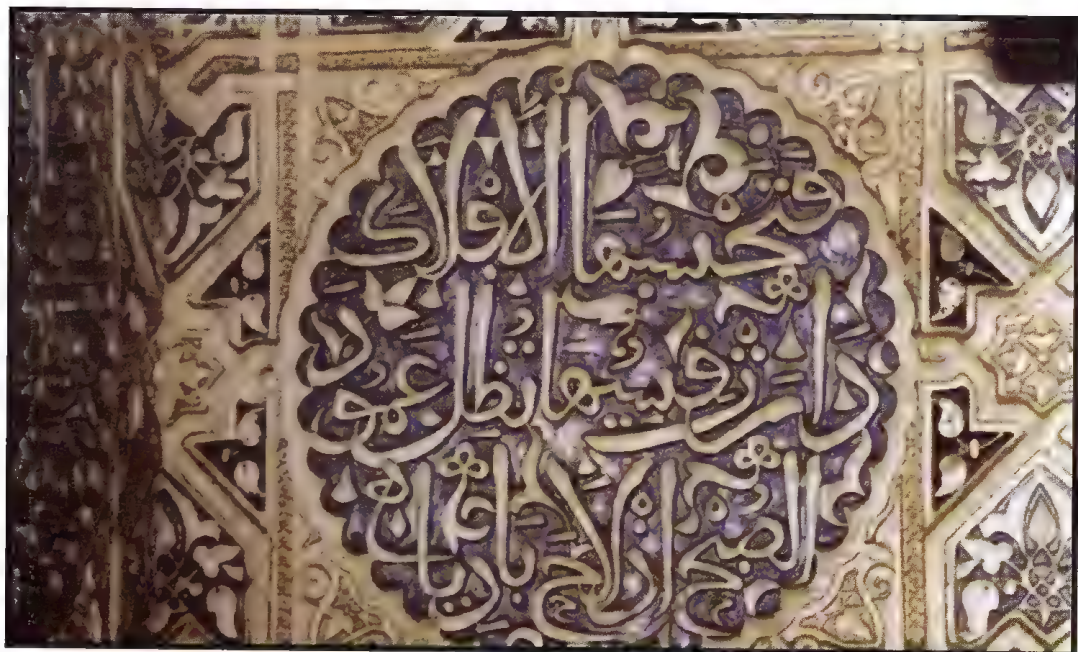 فتحسبها الأفلاك
دارت قسيها تظل عمود
الصبح إذ لاح باديا